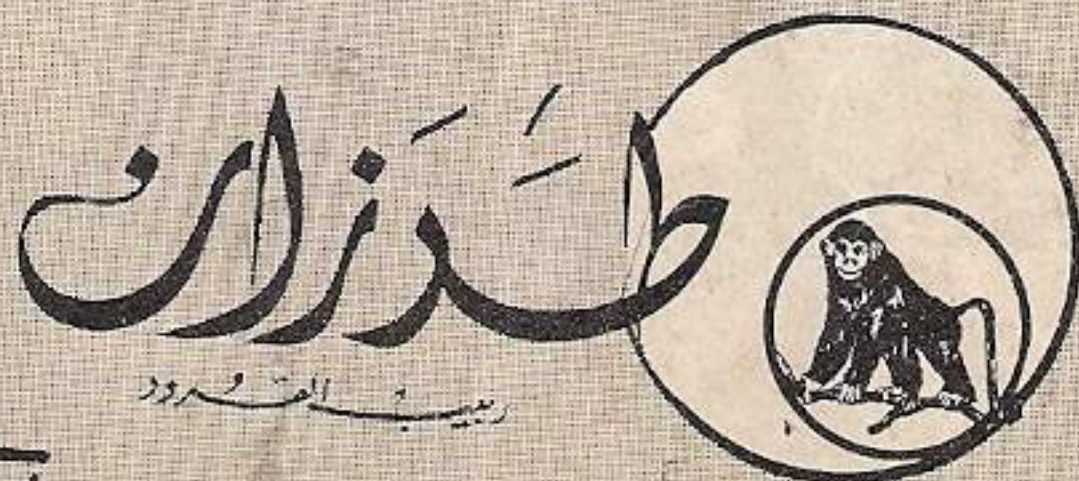 طَرَزان
ربيب القُرود